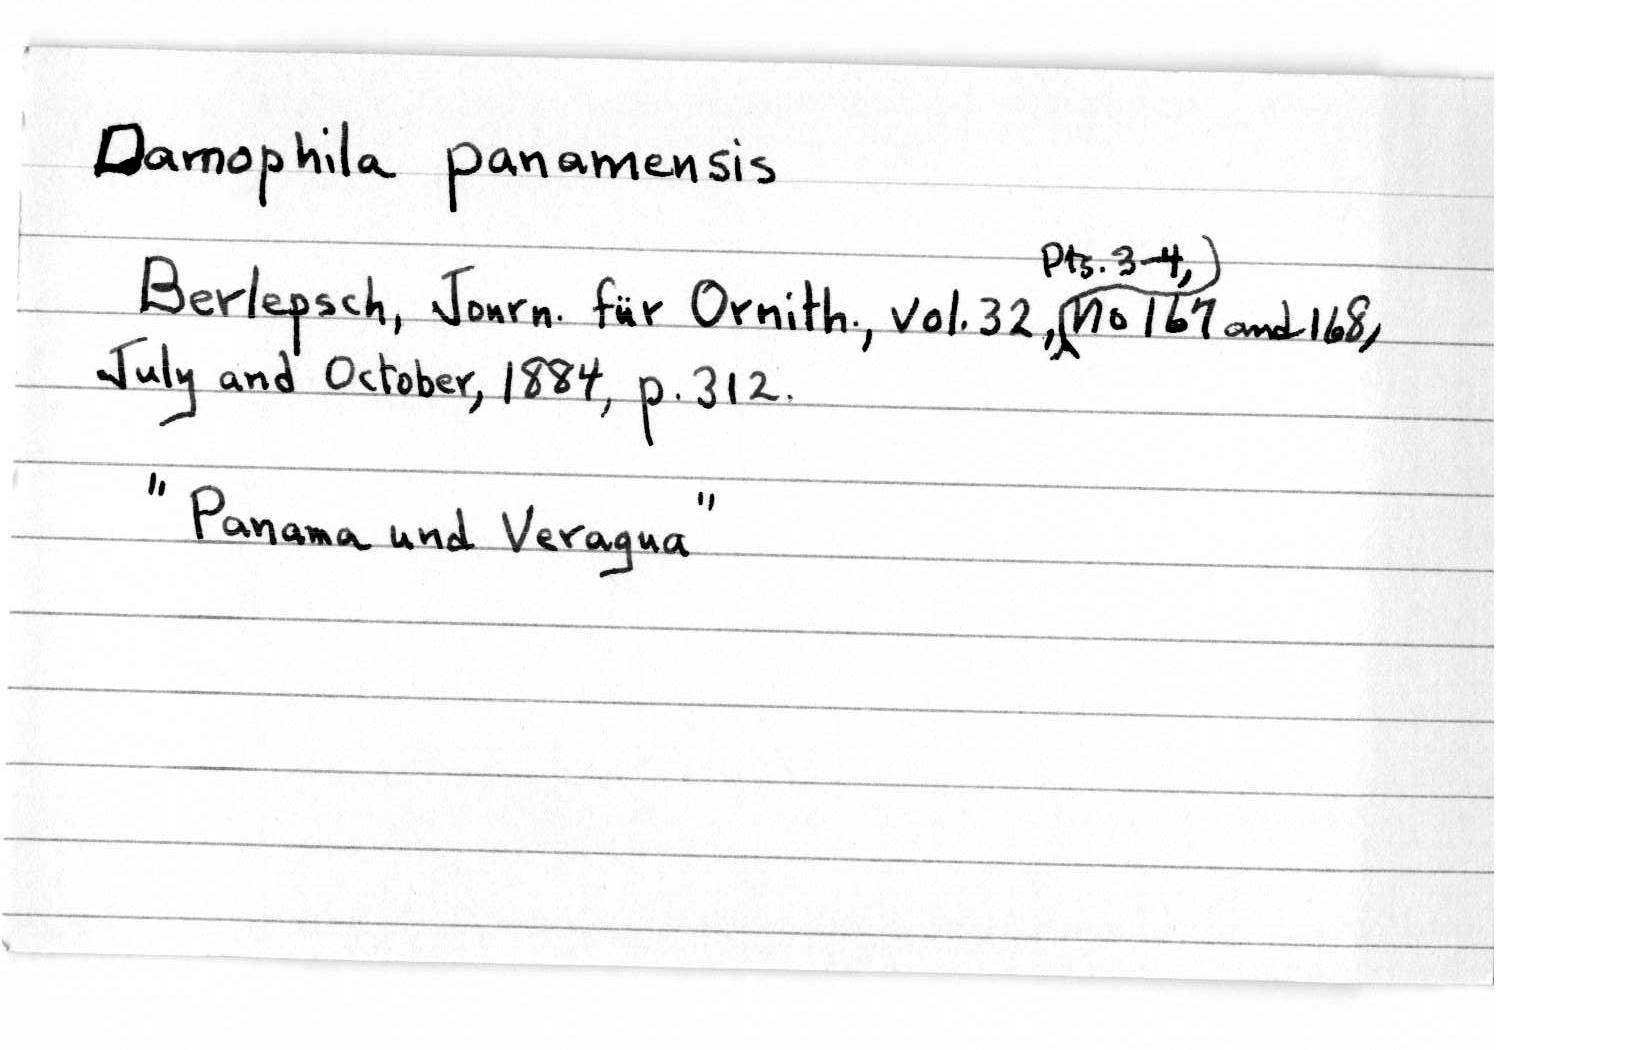 Damophila panamensis
Berlepsch, Journ. für Ornith., vol. 32, Pts. 3-4, no 167 and 168,
July and October, 1884, p. 312.
"Panama und Veragua"